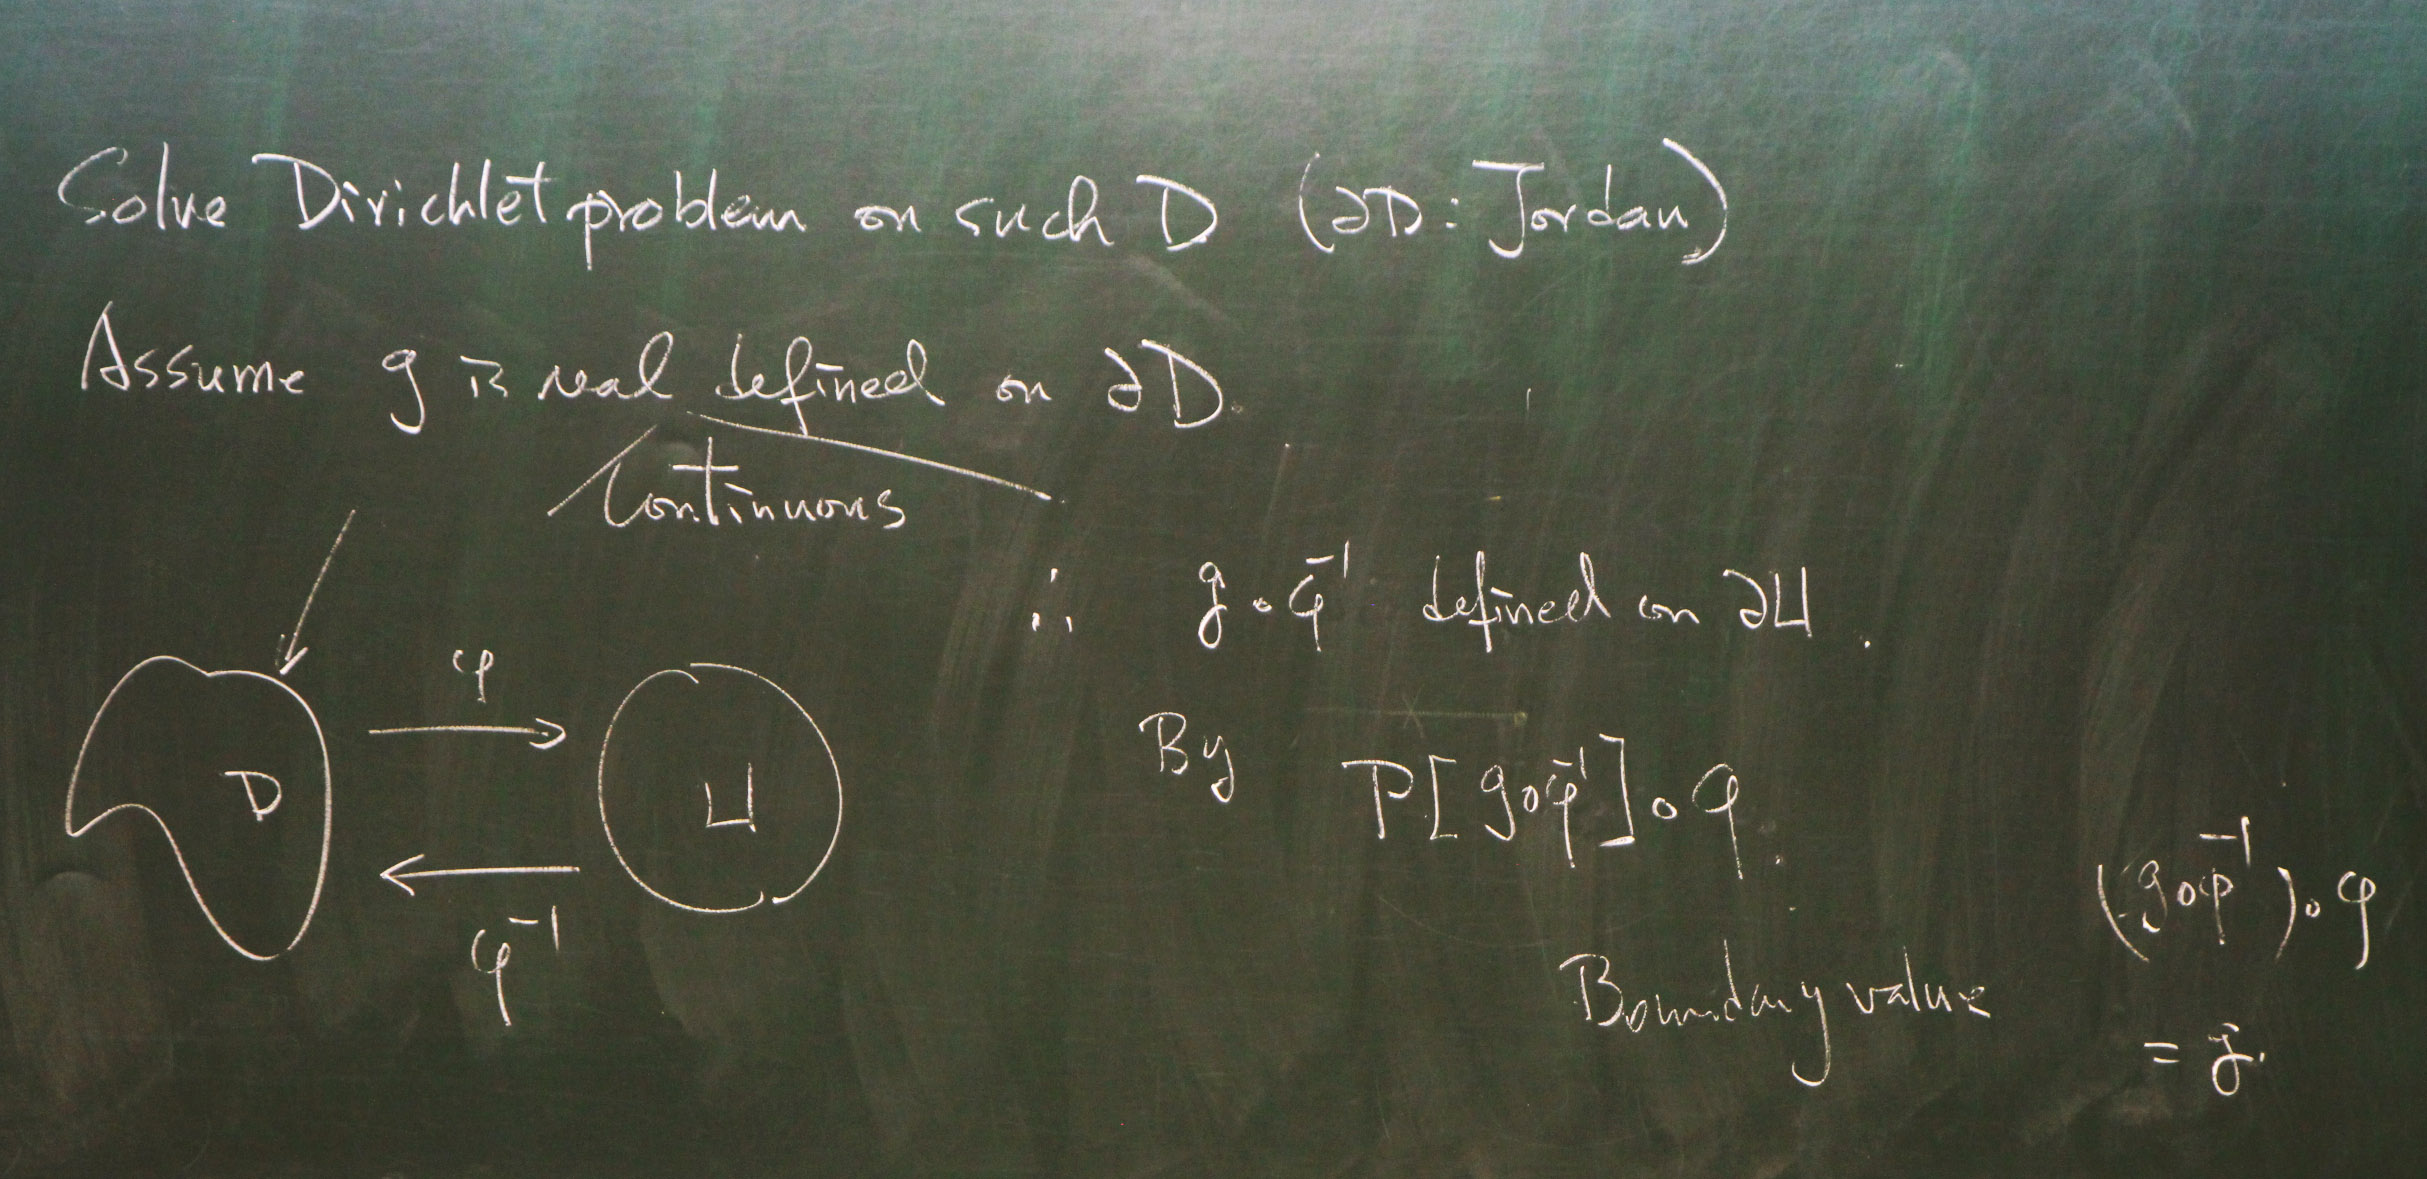 Solve Dirichlet problem on such D (∂D : Jordan)
Assume g is real defined on ∂D.
Continuous
∴ g∘φ⁻¹ defined on ∂U.
φ
D
U
φ⁻¹
By P[g∘φ⁻¹]∘φ.
Boundary value (g∘φ⁻¹)∘φ
= g.